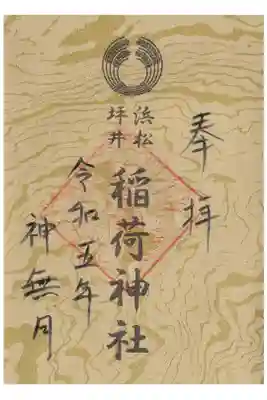 奉拝
浜松
坪井
稲荷神社
令和五年
神無月